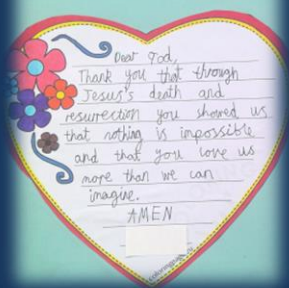 Dear God,
Thank you that through
Jesus's death and
resurrection you showed us
that nothing is impossible
and that you love us
more than we can
imagine.
AMEN